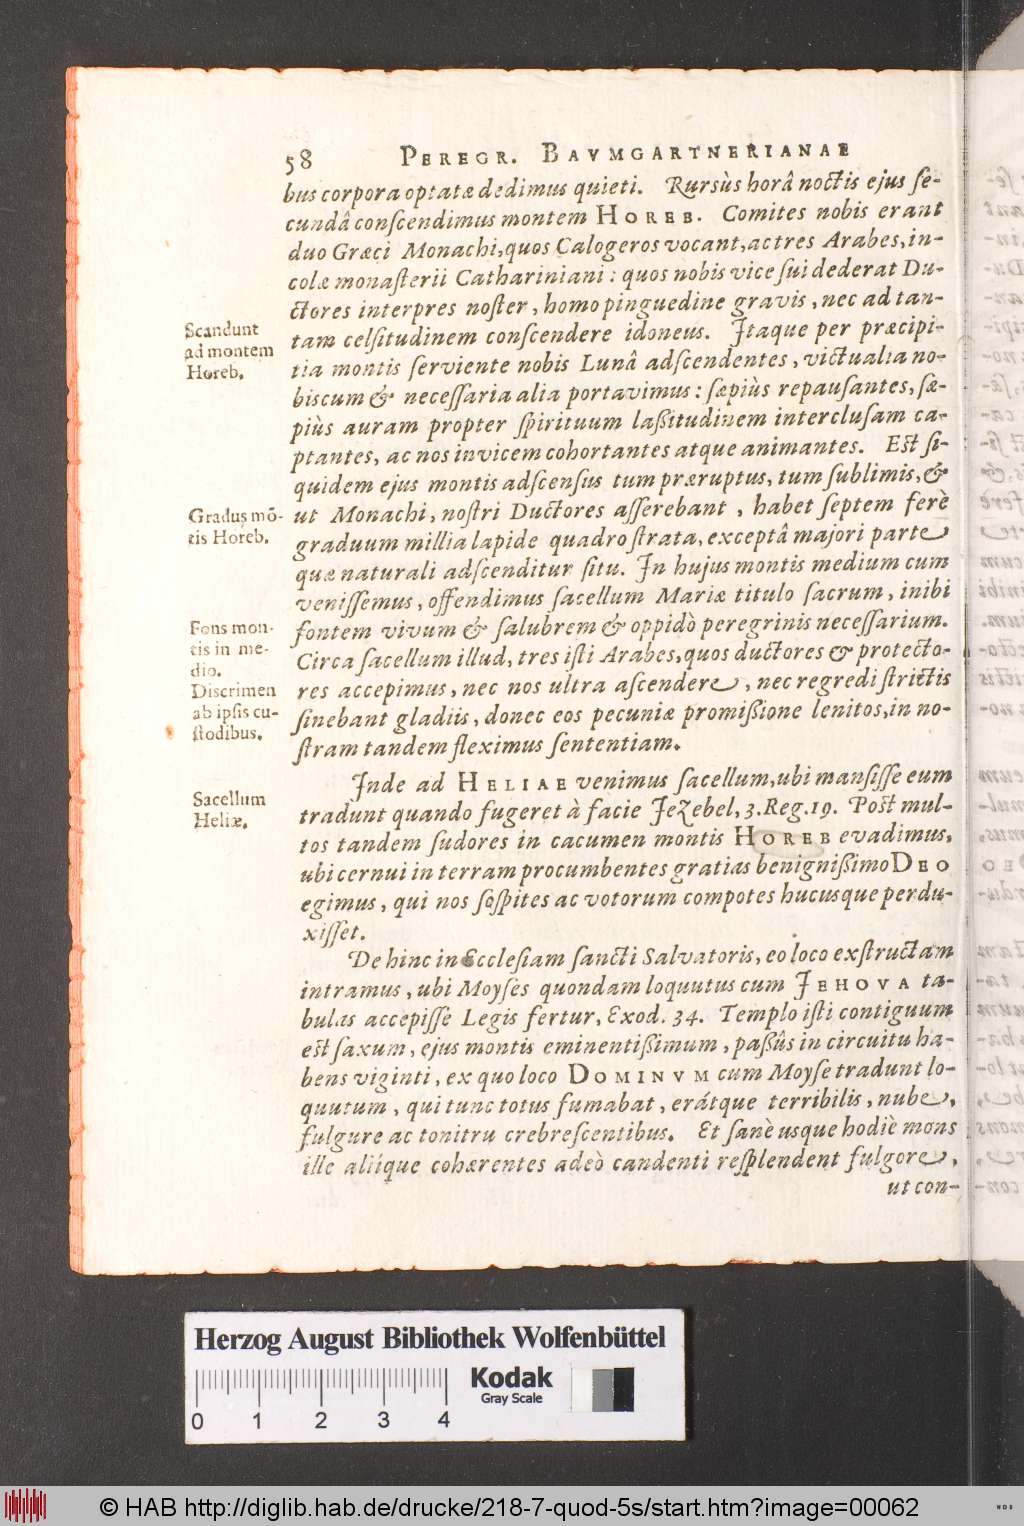 58 PEREGR. BAVMGARTNERIANAE
bus corpora optatæ dedimus quieti. Rursùs horâ noctis ejus ſe-
cundâ conſcendimus montem HOREB. Comites nobis erant
duo Græci Monachi, quos Calogeros vocant, ac tres Arabes, in-
colæ monaſterii Cathariniani: quos nobis vice ſui dederat Du-
ctores interpres noſter, homo pinguedine gravis, nec ad tan-
Scandunt
ad montem
Horeb.
tam celſitudinem conſcendere idoneus. Itaque per præcipi-
tia montis ſerviente nobis Lunâ adſcendentes, victualia no-
biscum & neceſſaria alia portavimus: ſæpiùs repauſantes, ſæ-
piùs auram propter ſpirituum laßitudinem interclusam ca-
ptantes, ac nos invicem cohortantes atque animantes. Est ſi-
quidem ejus montis adſcensus tum præruptus, tum ſublimis, &
Gradus mõ-
tis Horeb.
ut Monachi, noſtri Ductores aſſerebant, habet ſeptem ferè
graduum millia lapide quadro ſtrata, exceptâ majori parte
quæ naturali adſcenditur ſitu. In hujus montis medium cum
veniſſemus, offendimus ſacellum Mariæ titulo ſacrum, inibi
Fons mon-
tis in me-
dio.
fontem vivum & ſalubrem & oppidò peregrinis neceſſarium.
Circa ſacellum illud, tres iſti Arabes, quos ductores & protecto-
Discrimen
ab ipſis cu-
ſtodibus.
res accepimus, nec nos ultra aſcendere, nec regredi ſtrictis
ſinebant gladiis, donec eos pecuniæ promißione lenitos, in no-
ſtram tandem fleximus ſententiam.
Sacellum
Heliæ.
Inde ad HELIAE venimus ſacellum, ubi manſiſſe eum
tradunt quando fugeret à facie Jezebel, 3. Reg. 19. Post mul-
tos tandem ſudores in cacumen montis HOREB evadimus,
ubi cernui in terram procumbentes gratias benignißimo DEO
egimus, qui nos ſoſpites ac votorum compotes hucusque perdu-
xiſſet.
Dehinc in Eccleſiam ſancti Salvatoris, eo loco exſtructam
intramus, ubi Moyſes quondam loquutus cum JEHOVA ta-
bulas accepiſſe Legis fertur, Exod. 34. Templo iſti contiguum
est ſaxum, ejus montis eminentißimum, paßûs in circuitu ha-
bens viginti, ex quo loco DOMINVM cum Moyſe tradunt lo-
quutum, qui tunc totus fumabat, erátque terribilis, nube,
fulgure ac tonitru crebreſcentibus. Et ſanè usque hodiè mons
ille aliíque cohærentes adeò candenti reſplendent fulgore,
ut con-
Herzog August Bibliothek Wolfenbüttel
Kodak
Gray Scale
0 1 2 3 4
© HAB http://diglib.hab.de/drucke/218-7-quod-5s/start.htm?image=00062